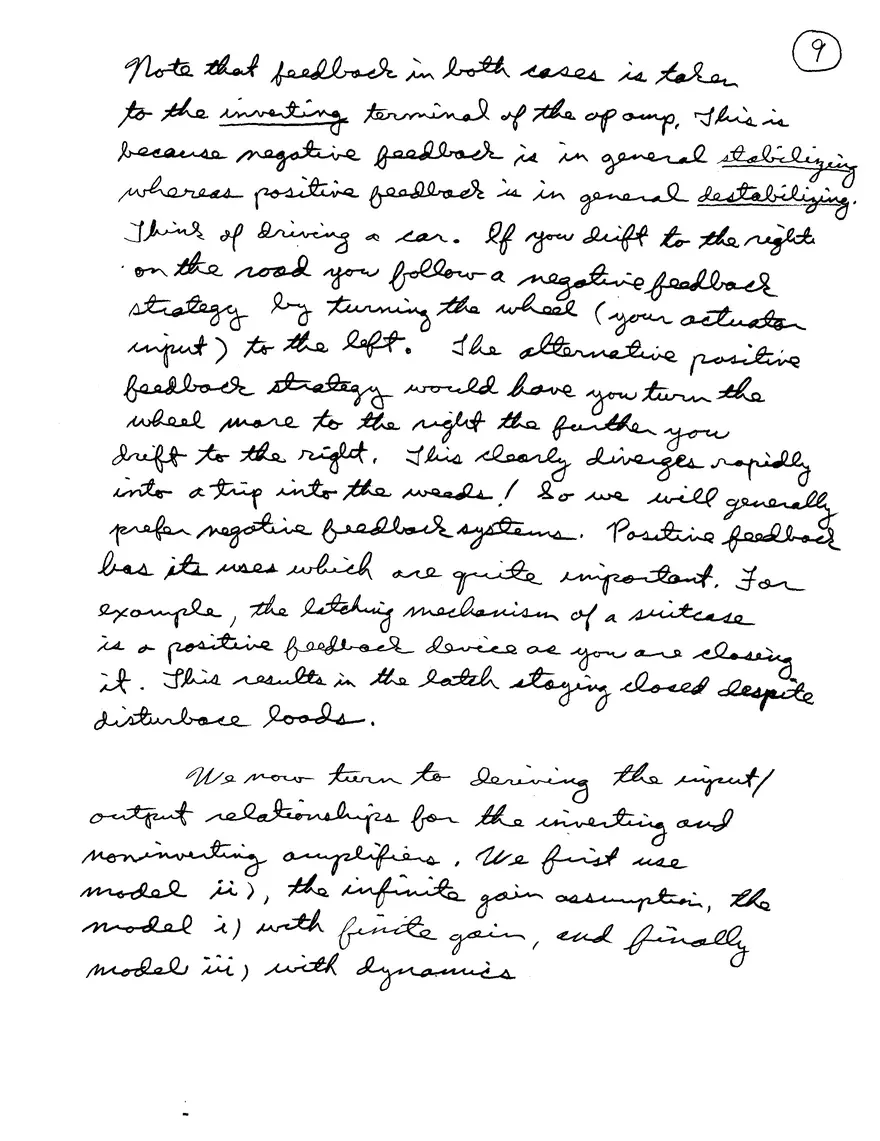 9
Note that feedback in both cases is taken
to the inverting terminal of the op amp. This is
because negative feedback is in general stabilizing
whereas positive feedback is in general destabilizing.
Think of driving a car. If you drift to the right
on the road you follow a negative feedback
strategy by turning the wheel (your actuator
input) to the left. The alternative positive
feedback strategy would have you turn the
wheel more to the right the further you
drift to the right. This clearly diverges rapidly
into a trip into the weeds! So we will generally
prefer negative feedback systems. Positive feedback
has its uses which are quite important. For
example, the latching mechanism of a suitcase
is a positive feedback device as you are closing
it. This results in the latch staying closed despite
disturbace loads.
We now turn to deriving the input/
output relationships for the inverting and
noninverting amplifiers. We first use
model ii), the infinite gain assumption, the
model i) with finite gain, and finally
model iii) with dynamics